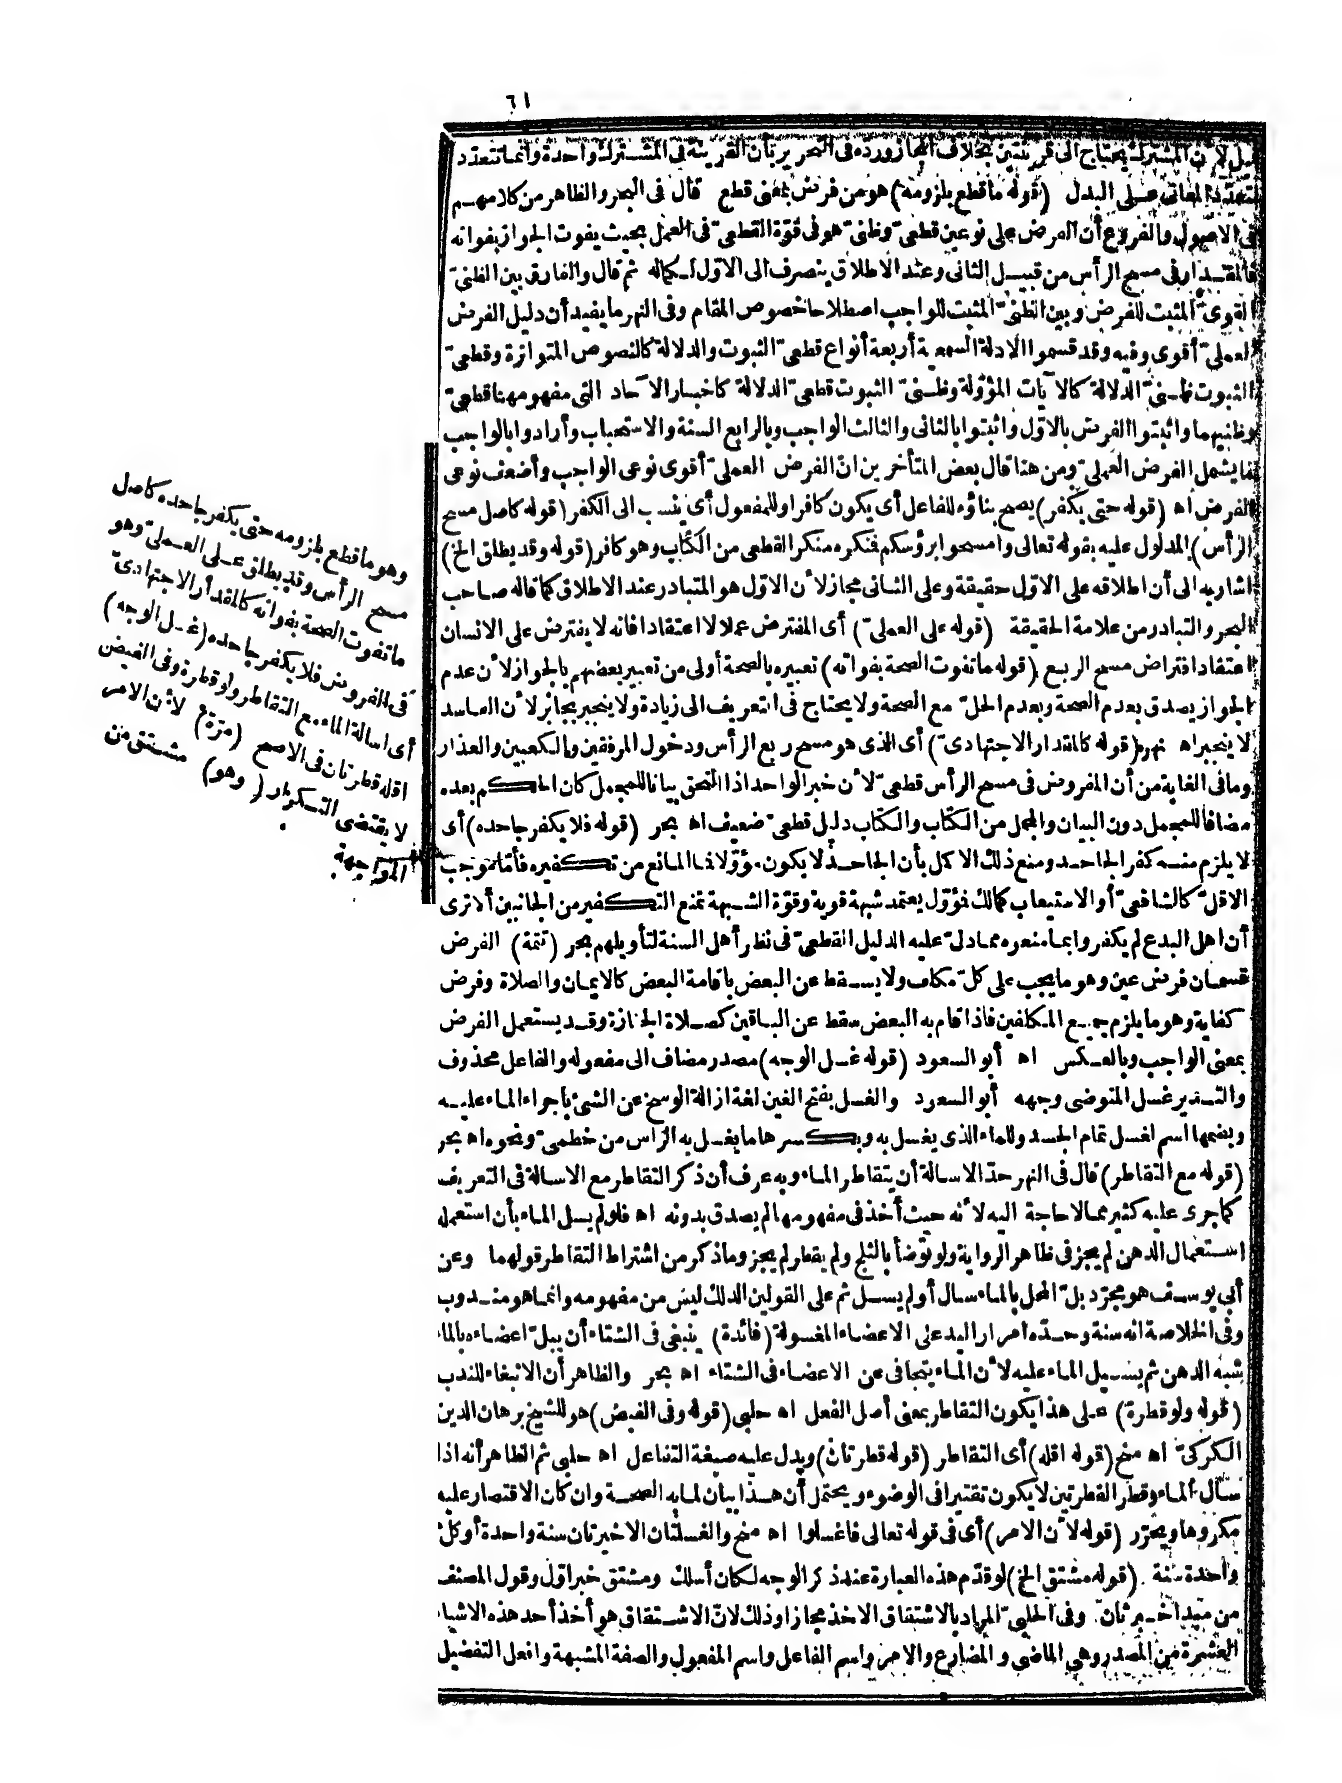 ٦١
قيل لأن المشترك يحتاج الى قرينتين بخلاف المجاز ورده فى التحرير بأن القرينة فى المشترك واحدة وانما تتعدد
بتعدد المعانى على البدل (قوله ما قطع بلزومه) هو من فرض بمعنى قطع قال فى البحر والظاهر من كلامهم
فى الاصول والفروع أن الفرض على نوعين قطعىّ وظنىّ هو فى قوّة القطعىّ فى العمل بحيث يفوت الجواز بفواته
فالمقدار فى مسح الرأس من قبيل الثانى وعند الاطلاق ينصرف الى الاوّل لكماله ثم قال والفارق بين الظنىّ
القوىّ المثبت للفرض وبين الظنىّ المثبت للواجب اصطلاحا خصوص المقام وفى النهر ما يفيد أن دليل الفرض
العملىّ أقوى وفيه وقد قسموا الادلة السمعية أربعة أنواع قطعىّ الثبوت والدلالة كالنصوص المتواترة وقطعىّ
الثبوت ظنىّ الدلالة كالآيات المؤوّلة وظنىّ الثبوت قطعىّ الدلالة كاخبار الآحاد التى مفهومها قطعىّ
وظنيهما واثبتوا الفرض بالاوّل واثبتوا بالثانى والثالث الواجب وبالرابع السنة والاستحباب وأرادوا بالواجب
ما يشمل الفرض العملىّ ومن هنا قال بعض المتأخرين انّ الفرض العملىّ أقوى نوعى الواجب وأضعف نوعى
الفرض اه (قوله حتى يكفر) يصح بناؤه للفاعل أى يكون كافرا وللمفعول أى ينسب الى الكفر (قوله كاصل مسح
الرأس) المدلول عليه بقوله تعالى وامسحوا برؤسكم فنكره منكر القطعى من الكتاب وهو كافر (قوله وقد يطلق الخ)
اشار به الى أن اطلاقه على الاوّل حقيقة وعلى الثانى مجاز لأن الاوّل هو المتبادر عند الاطلاق كما قاله صاحب
البحر والتبادر من علامة الحقيقة (قوله على العملىّ) أى المفترض عملا لا اعتقادا فانه لا يفترض على الانسان
اعتقاد افتراض مسح الربع (قوله ما تفوت الصحة بفواته) تعبيره بالصحة أولى من تعبير بعضهم بالجواز لأن عدم
الجواز يصدق بعدم الصحة وبعدم الحلّ مع الصحة ولا يحتاج فى التعريف الى زيادة ولا ينجبر بجابر لأن الفاسد
لا ينجبر اه نهر (قوله كالمقدار الاجتهادىّ) أى الذى هو مسح ربع الرأس ودخول المرفقين والكعبين والعذار
وما فى الغاية من أن المفروض فى مسح الرأس قطعىّ لأن خبر الواحد اذا التحق بيانا للمجمل كان الحكم بعده
مضافا للمجمل دون البيان والمجمل من الكتاب والكتاب دليل قطعىّ ضعيف اه بحر (قوله فلا يكفر جاحده) أى
لا يلزم منه كفر الجاحد ومنع ذلك الاكمل بأن الجاحد لا يكون مؤوّلا فما المانع من تكفيره فأمّا موجب
الاقلّ كالشافعىّ أو الاستيعاب كمالك فؤوّل يعتمد شبهة قوية وقوّة الشبهة تمنع التكفير من الجانبين ألا ترى
أن اهل البدع لم يكفروا بما منعوه مما دلّ عليه الدليل القطعىّ فى نظر أهل السنة لتأويلهم بحر (تتمة) الفرض
قسمان فرض عين وهو ما يجب على كلّ مكلف ولا يسقط عن البعض باقامة البعض كالايمان والصلاة وفرض
كفاية وهو ما يلزم جميع المكلفين فاذا قام به البعض سقط عن الباقين كصلاة الجنازة وقد يستعمل الفرض
بمعنى الواجب وبالعكس اه أبو السعود (قوله غسل الوجه) مصدر مضاف الى مفعوله والفاعل محذوف
والتقدير غسل المتوضى وجهه أبو السعود والغسل بفتح الغين لغة ازالة الوسخ عن الشئ باجراء الماء عليه
وبضمها اسم لغسل تمام الجسد وللماء الذى يغسل به وبكسرها ما يغسل به الرأس من خطمىّ ونحوه اه بحر
(قوله مع التقاطر) قال فى النهر حدّ الاسالة أن يتقاطر الماء وبه عرف أن ذكر التقاطر مع الاسالة فى التعريف
كما جرى عليه كثير مما لا حاجة اليه لأنه حيث أخذ فى مفهومها لم يصدق بدونه اه فلو لم يسل الماء بأن استعمله
استعمال الدهن لم يجز فى ظاهر الرواية ولو توضأ بالثلج ولم يقطر لم يجز وما ذكر من اشتراط التقاطر قولهما وعن
أبى يوسف هو مجرّد بلّ المحل بالماء سال أو لم يسل ثم على القولين الدلك ليس من مفهومه وانما هو مندوب
وفى الخلاصة انه سنة وحدّه امرار اليد على الاعضاء المغسولة (فائدة) ينبغى فى الشتاء أن يبلّ اعضاءه بالماء
شبه الدهن ثم يسيل الماء عليه لأن الماء يتجافى عن الاعضاء فى الشتاء اه بحر والظاهر أن الانبغاء للندب
(قوله ولو قطرة) على هذا يكون التقاطر بمعنى أصل الفعل اه حلبى (قوله وفى الفيض) هو للشيخ برهان الدين
الكركىّ اه منح (قوله اقله) أى التقاطر (قوله قطرتان) ويدل عليه صيغة التفاعل اه حلبى ثم الظاهر أنه اذا
سال الماء وقطر القطرتين لا يكون تقتيرا فى الوضوء ويحتمل أن هذا بيان لما به الصحة وان كان الاقتصار عليه
مكروها ويحرّر (قوله لأن الامر) أى فى قوله تعالى فاغسلوا اه منح والغسلتان الاخيرتان سنة واحدة أو كلّ
واحدة سنة (قوله مشتق الخ) لو قدّم هذه العبارة عند ذكر الوجه لكان أسلك ومشتق خبر اوّل وقول المصنف
من مبدا خبر ثان وفى الحلبىّ المراد بالاشتقاق الاخذ مجازا وذلك لانّ الاشتقاق هو أخذ أحد هذه الاشياء
العشرة من المصدر وهى الماضى والمضارع والامر واسم الفاعل واسم المفعول والصفة المشبهة وافعل التفضيل
وهو ما قطع بلزومه حتى يكفر جاحده كاصل
مسح الرأس وقد يطلق على العملىّ وهو
ما تفوت الصحة بفواته كالمقدار الاجتهادىّ
فى الفروض فلا يكفر جاحده (غسل الوجه)
أى اسالة الماء مع التقاطر ولو قطرة وفى الفيض
اقله قطرتان فى الاصح (مرّة) لأن الامر
لا يقتضى التكرار (وهو) مشتق من
المواجهة